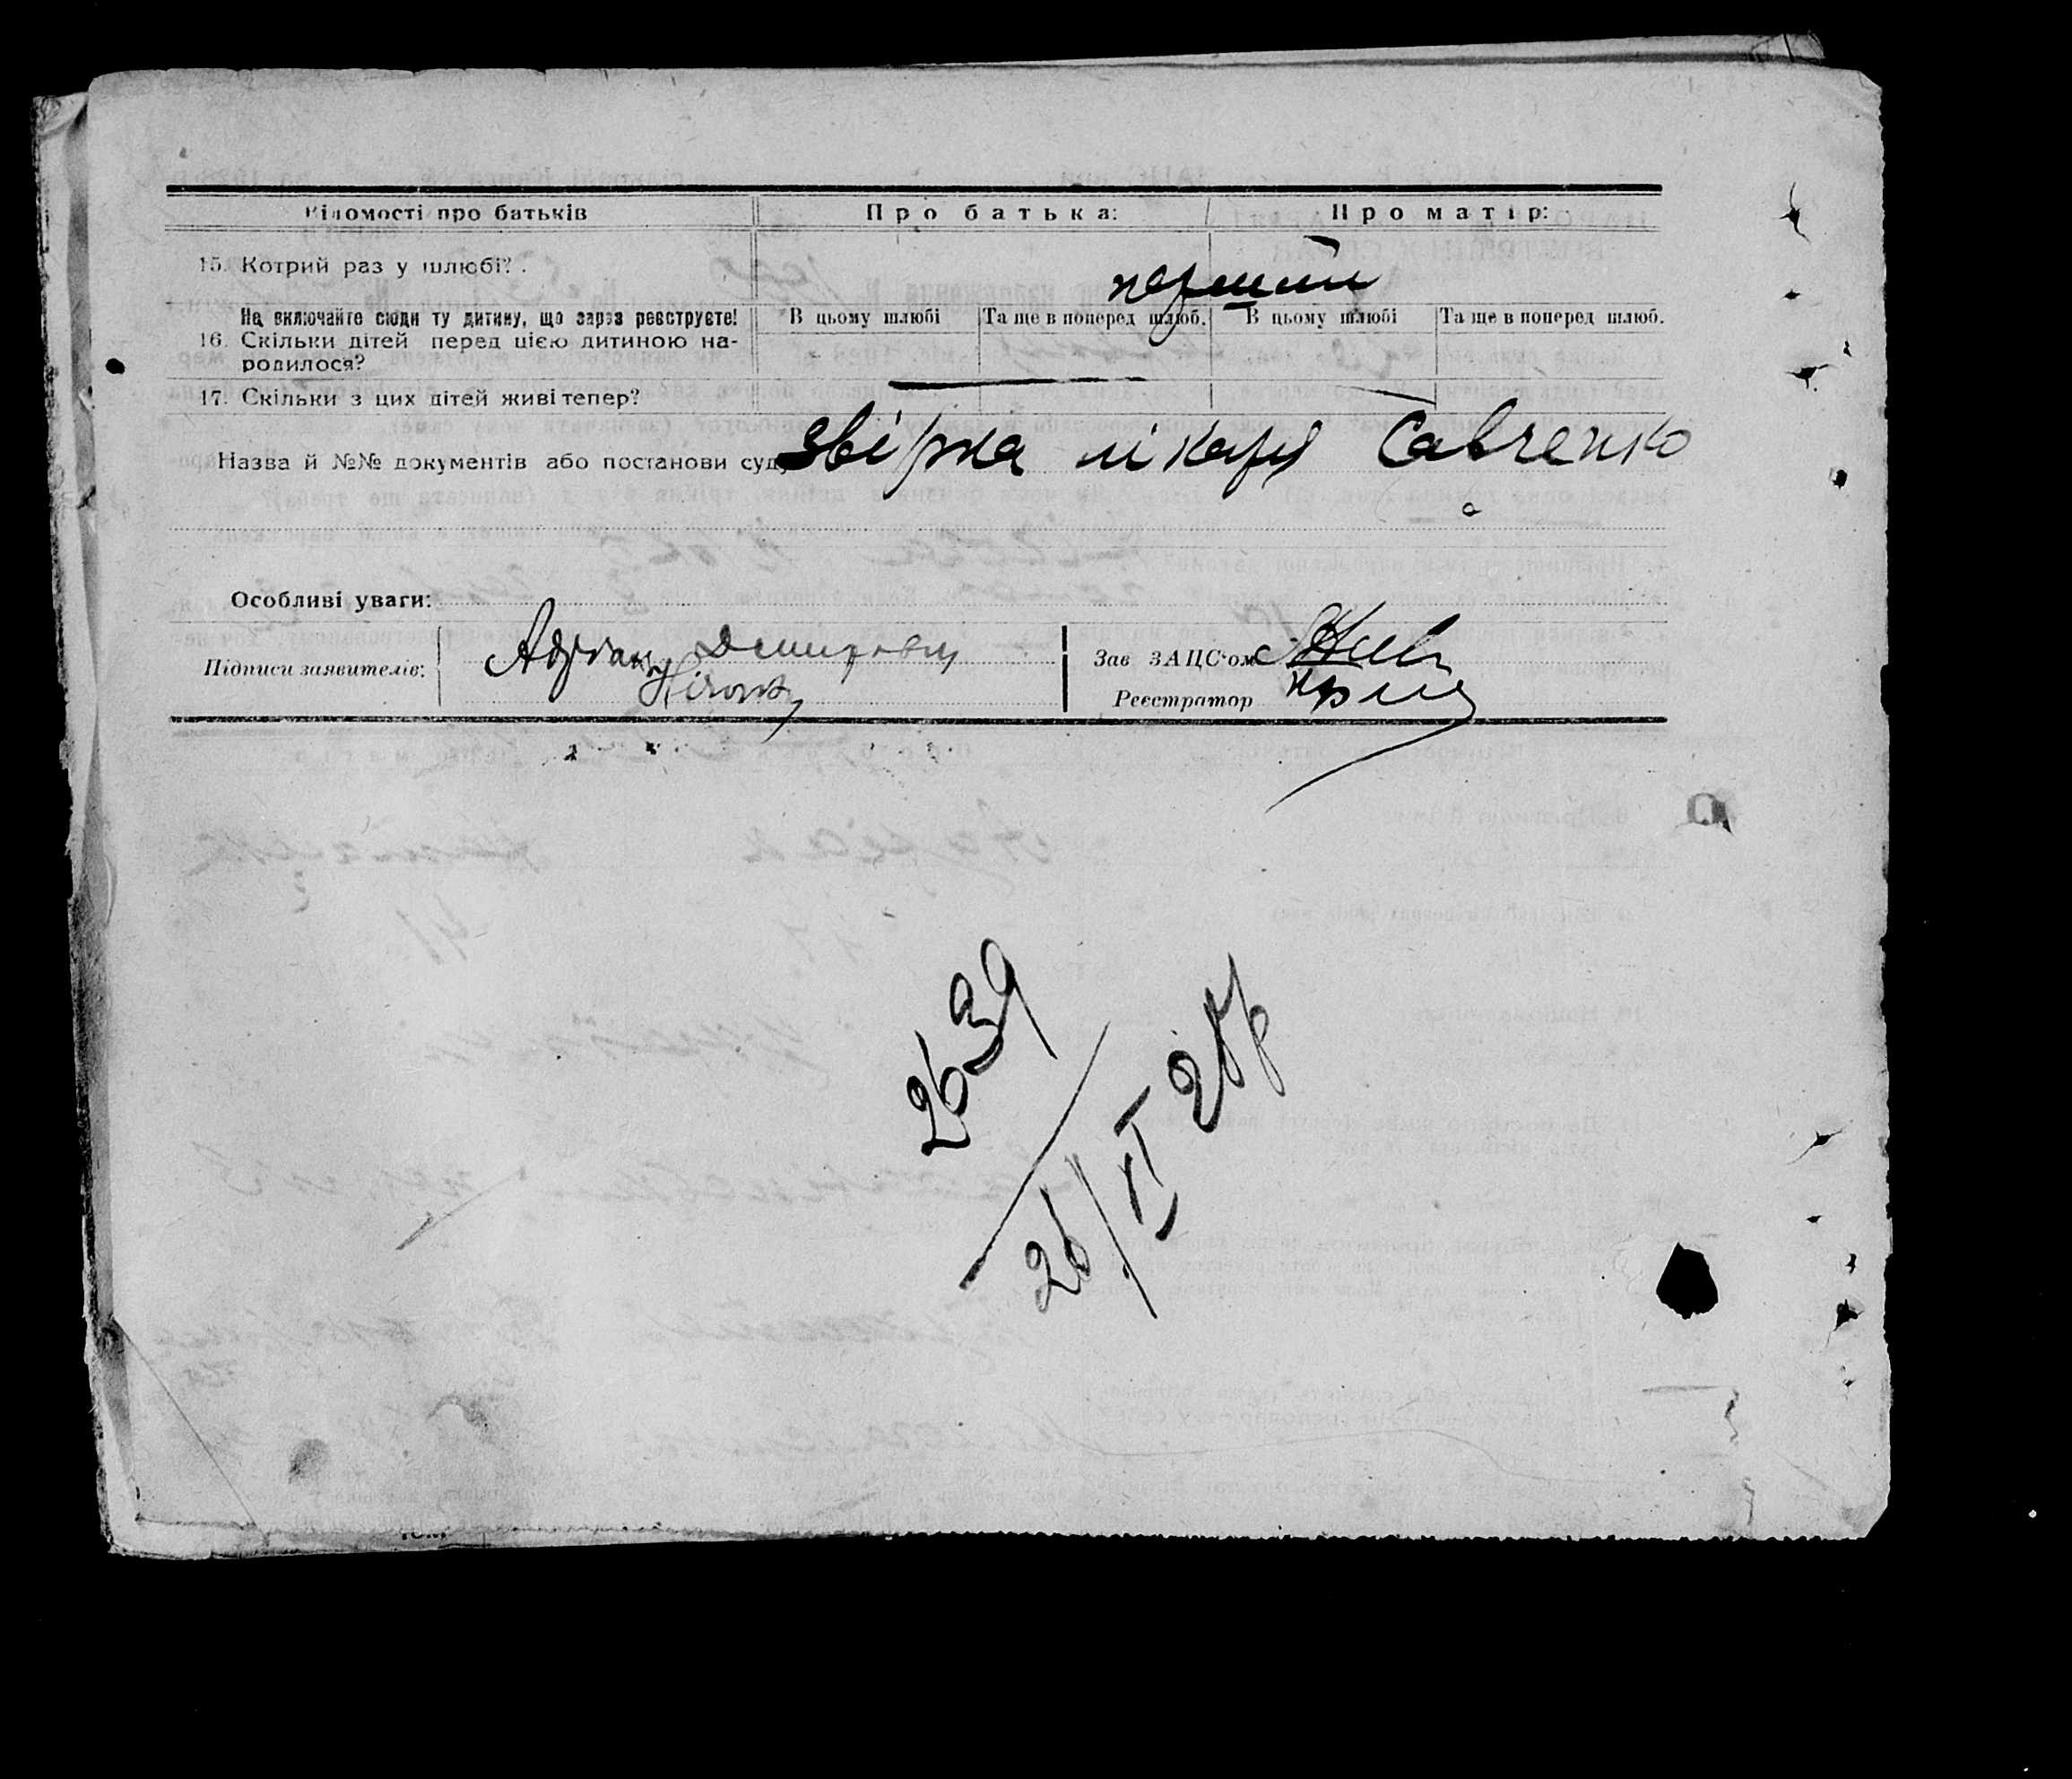 Відомості про батьків
Про батька:
Про матір:
15. Котрий раз у шлюбі?
перший
Не включайте сюди ту дитину, що зараз реєструєте!
В цьому шлюбі
Та ще в поперед шлюб.
В цьому шлюбі
Та ще в поперед шлюб.
16. Скільки дітей перед цією дитиною на-
родилося?
17. Скільки з цих дітей живі тепер?
Назва й №№ документів або постанови суд
звірка лікаря Савченко
Особливі уваги:
Підписи заявителів:
Зав ЗАЦС'ом
Реєстратор
2639
26/XI 28р